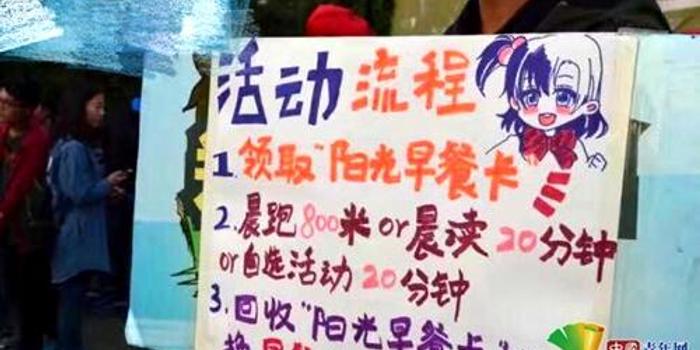 活动流程
1.领取"阳光早餐卡
2.晨跑800米or晨读20分钟
or自选活动20分钟
3.回收"阳光早餐卡"
换早
中国青年网